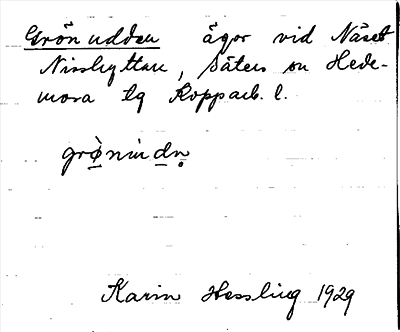 Grönudden ägor vid Näset
Nisshyttan, Säters sn Hede-
mora tg Kopparb. l.
grò̱nùdn̥
Karin Hessling 1929